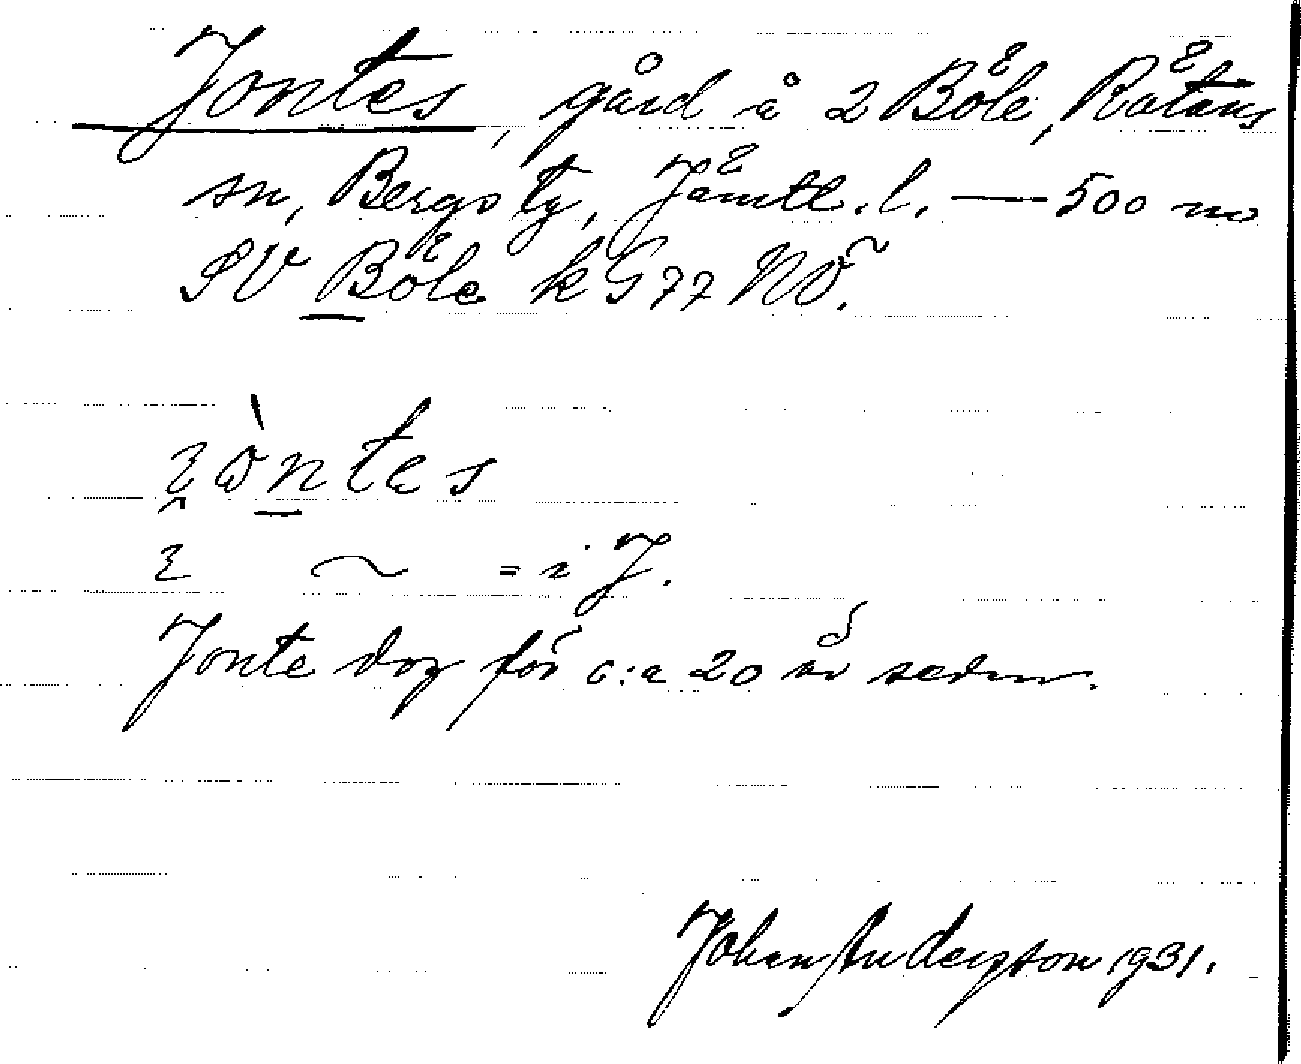 Jontes, gård å 2 Böle, Rätans
sn, Bergs tg, Jämtl. l. — 500 m
SV Böle k G 77 NÖ.
ɩ̯òntes
ɩ ~ = i J.
Jonte dog för c:a 20 år sedan.
Johan Anderzson 1931.